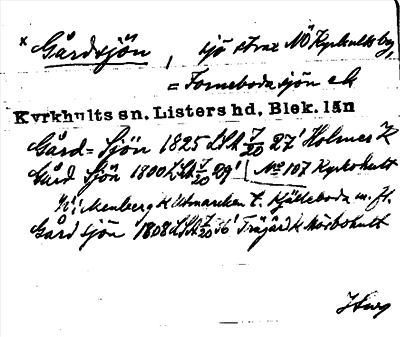 x Gårdsjön, sjö strax NÖ Kyrkults by,
= Fornebodasjön ek
Kyrkhults sn. Listers hd, Blek. län
Gård-Sjön 1825 LSA 7/20 27' Holmes K
Gård Sjön 1800 LSA 7/20 29' No 107 Kyrkohult
K Utmarken t. Kjätteboda m. fl.
Gårdsjön 1808 LSA 7/20 36' K Mörbohult